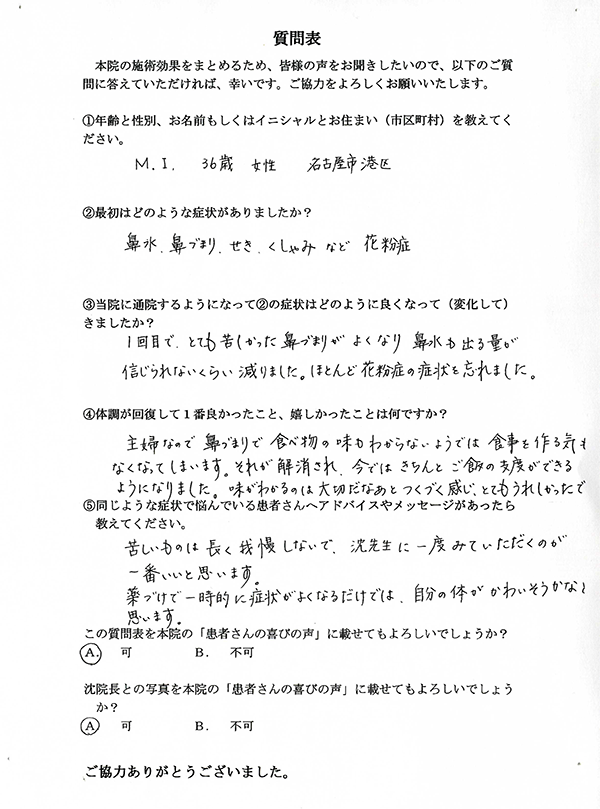 質問表
本院の施術効果をまとめるため、皆様の声をお聞きしたいので、以下のご質
問に答えていただければ、幸いです。ご協力をよろしくお願いいたします。
①年齢と性別、お名前もしくはイニシャルとお住まい（市区町村）を教えてく
ださい。
M.I. 36歳 女性 名古屋市港区
②最初はどのような症状がありましたか？
鼻水、鼻づまり、せき、くしゃみ など 花粉症
③当院に通院するようになって②の症状はどのように良くなって（変化して）
きましたか？
1回目で、とても苦しかった鼻づまりが よくなり 鼻水も出る量が
信じられないくらい減りました。ほとんど花粉症の症状を忘れました。
④体調が回復して１番良かったこと、嬉しかったことは何ですか？
主婦なので 鼻づまりで 食べ物の味もわからないようでは 食事を作る気も
なくなってしまいます。それが解消され、今では きちんと ご飯の支度ができる
ようになりました。味がわかるのは大切だなあとつくづく感じ、とてもうれしかったで
⑤同じような症状で悩んでいる患者さんへアドバイスやメッセージがあったら
教えてください。
苦しいものは 長く我慢しないで、沈先生に一度みていただくのが
一番いいと思います。
薬づけで一時的に症状がよくなるだけでは、自分の体が かわいそうかなと
思います。
この質問表を本院の「患者さんの喜びの声」に載せてもよろしいでしょうか？
A. 可 B. 不可
沈院長との写真を本院の「患者さんの喜びの声」に載せてもよろしいでしょう
か？
A 可 B. 不可
ご協力ありがとうございました。